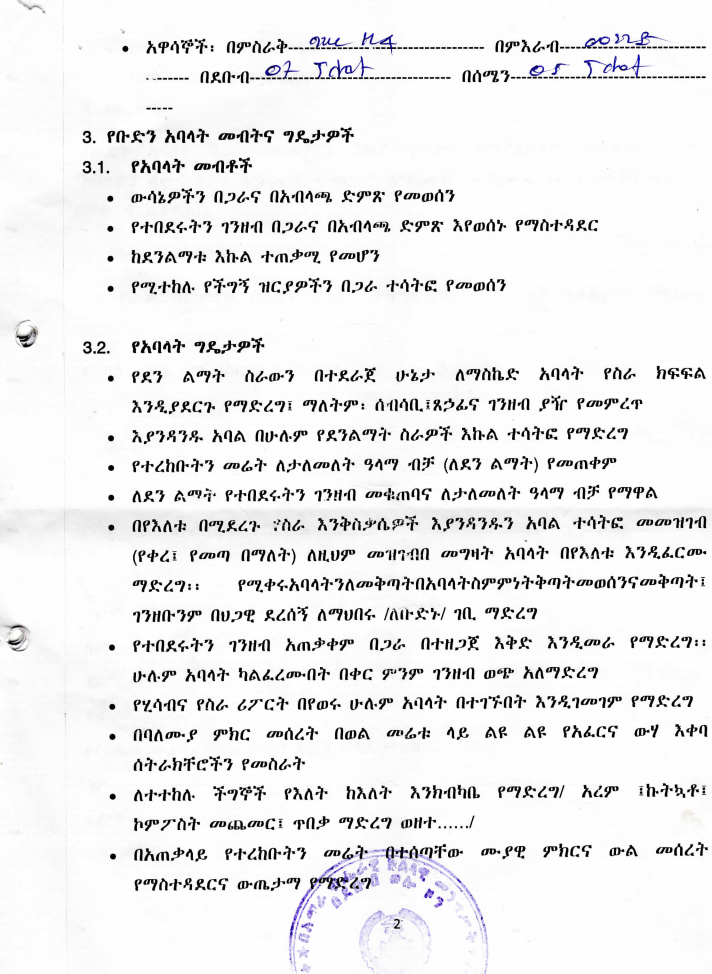 • አዋሳኞች፡ በምስራቅ-------------------------------- በምእራብ------------------------
------- በደቡብ 07 --------------------------------- በሰሜን 05 --------------------------------
-----
3. የቡድን አባላት መብትና ግዴታዎች
3.1. የአባላት መብቶች
• ውሳኔዎችን በጋራና በአብላጫ ድምጽ የመወሰን
• የተበደሩትን ገንዘብ በጋራና በአብላጫ ድምጽ እየወሰኑ የማስተዳደር
• ከደንልማቱ እኩል ተጠቃሚ የመሆን
• የሚተከሉ የችግኝ ዝርያዎችን በጋራ ተሳትፎ የመወሰን
3.2. የአባላት ግዴታዎች
• የደን ልማት ስራውን በተደራጀ ሁኔታ ለማስኬድ አባላት የስራ ክፍፍል
እንዲያደርጉ የማድረግ፤ ማለትም፡ ሰብሳቢ፤ጸኃፊና ገንዘብ ያዥ የመምረጥ
• እያንዳንዱ አባል በሁሉም የደንልማት ስራዎች እኩል ተሳትፎ የማድረግ
• የተረከቡትን መሬት ለታለመለት ዓላማ ብቻ (ለደን ልማት) የመጠቀም
• ለደን ልማት የተበደሩትን ገንዘብ መቁጠባና ለታለመለት ዓላማ ብቻ የማዋል
• በየእለቱ በሚደረጉ የስራ እንቅስቃሴዎች እያንዳንዱን አባል ተሳትፎ መመዝገብ
(የቀረ፤ የመጣ በማለት) ለዚህም መዝገብበ መግዛት አባላት በየእለቱ እንዲፈርሙ
ማድረግ፡፡ የሚቀሩአባላትንለመቅጣትበአባላትስምምነትቅጣትመወሰንናመቅጣት፤
ገንዘቡንም በህጋዊ ደረሰኝ ለማህበሩ /ለቡድኑ/ ገቢ ማድረግ
• የተበደሩትን ገንዘብ አጠቃቀም በጋራ በተዘጋጀ እቅድ እንዲመራ የማድረግ፡፡
ሁሉም አባላት ካልፈረሙበት በቀር ምንም ገንዘብ ወጭ አለማድረግ
• የሂሳብና የስራ ሪፖርት በየወሩ ሁሉም አባላት በተገኙበት እንዲገመገም የማድረግ
• በባለሙያ ምክር መሰረት በወል መሬቱ ላይ ልዩ ልዩ የአፈርና ውሃ እቀባ
ሰትራክቸሮችን የመስራት
• ለተተከሉ ችግኞች የእለት ከእለት እንክብካቤ የማድረግ/ አረም ፤ኩትኳቶ፤
ኮምፖስት መጨመር፤ ጥበቃ ማድረግ ወዘተ....../
• በአጠቃላይ የተረከቡትን መሬት በተሰጣቸው ሙያዊ ምክርና ውል መሰረት
የማስተዳደርና ውጤታማ የማድረግ
2